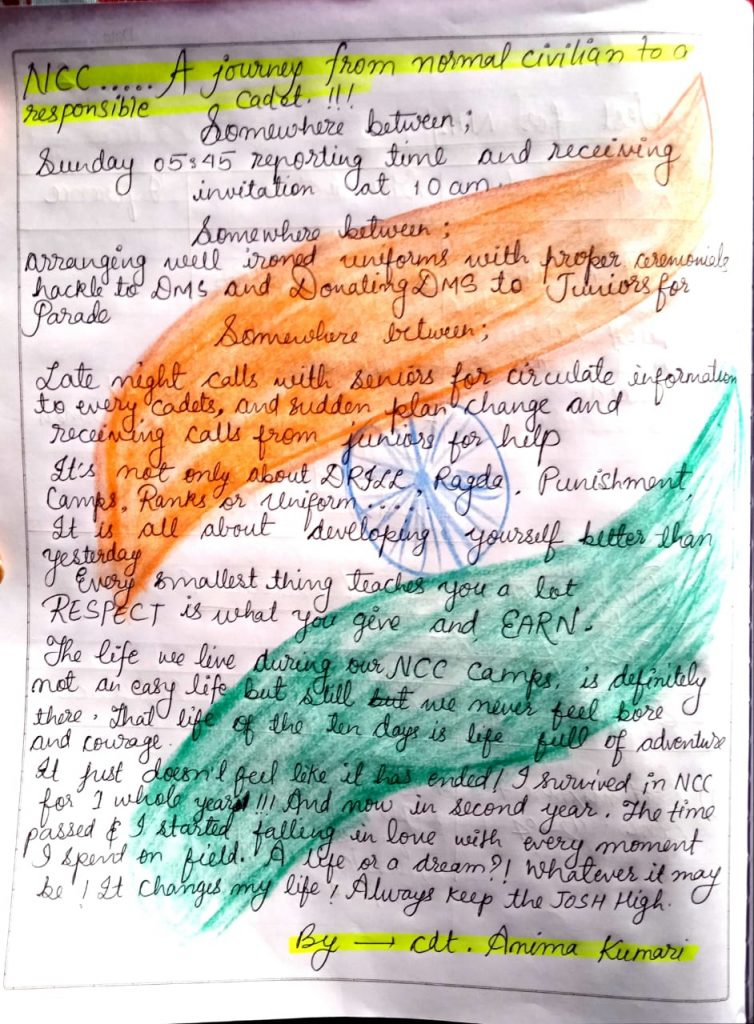 NCC..... A journey from normal civilian to a
responsible Cadet. !!!
Somewhere between;
Sunday 05:45 reporting time and receiving
invitation at 10 am.
Somewhere between;
arranging well ironed uniforms with proper ceremonials
hackle to DMS and Donating DMS to Juniors for
Parade
Somewhere between;
Late night calls with seniors for circulate information
to every cadets, and sudden plan change and
receiving calls from juniors for help
It's not only about DRILL, Ragda, Punishment,
Camps, Ranks or Uniform.....
It is all about developing yourself better than
yesterday
Every smallest thing teaches you a lot
RESPECT is what you give and EARN.
The life we live during our NCC camps, is definitely
not an easy life but still but we never feel bore
there. That life of the ten days is life full of adventure
and courage.
It just doesn't feel like it has ended! I survived in NCC
for 1 whole year !!! And now in second year. The time
passed & I started falling in love with every moment
I spend on field. A life or a dream?! Whatever it may
be! It changes my life! Always keep the JOSH High.
By → cdt. Anima Kumari